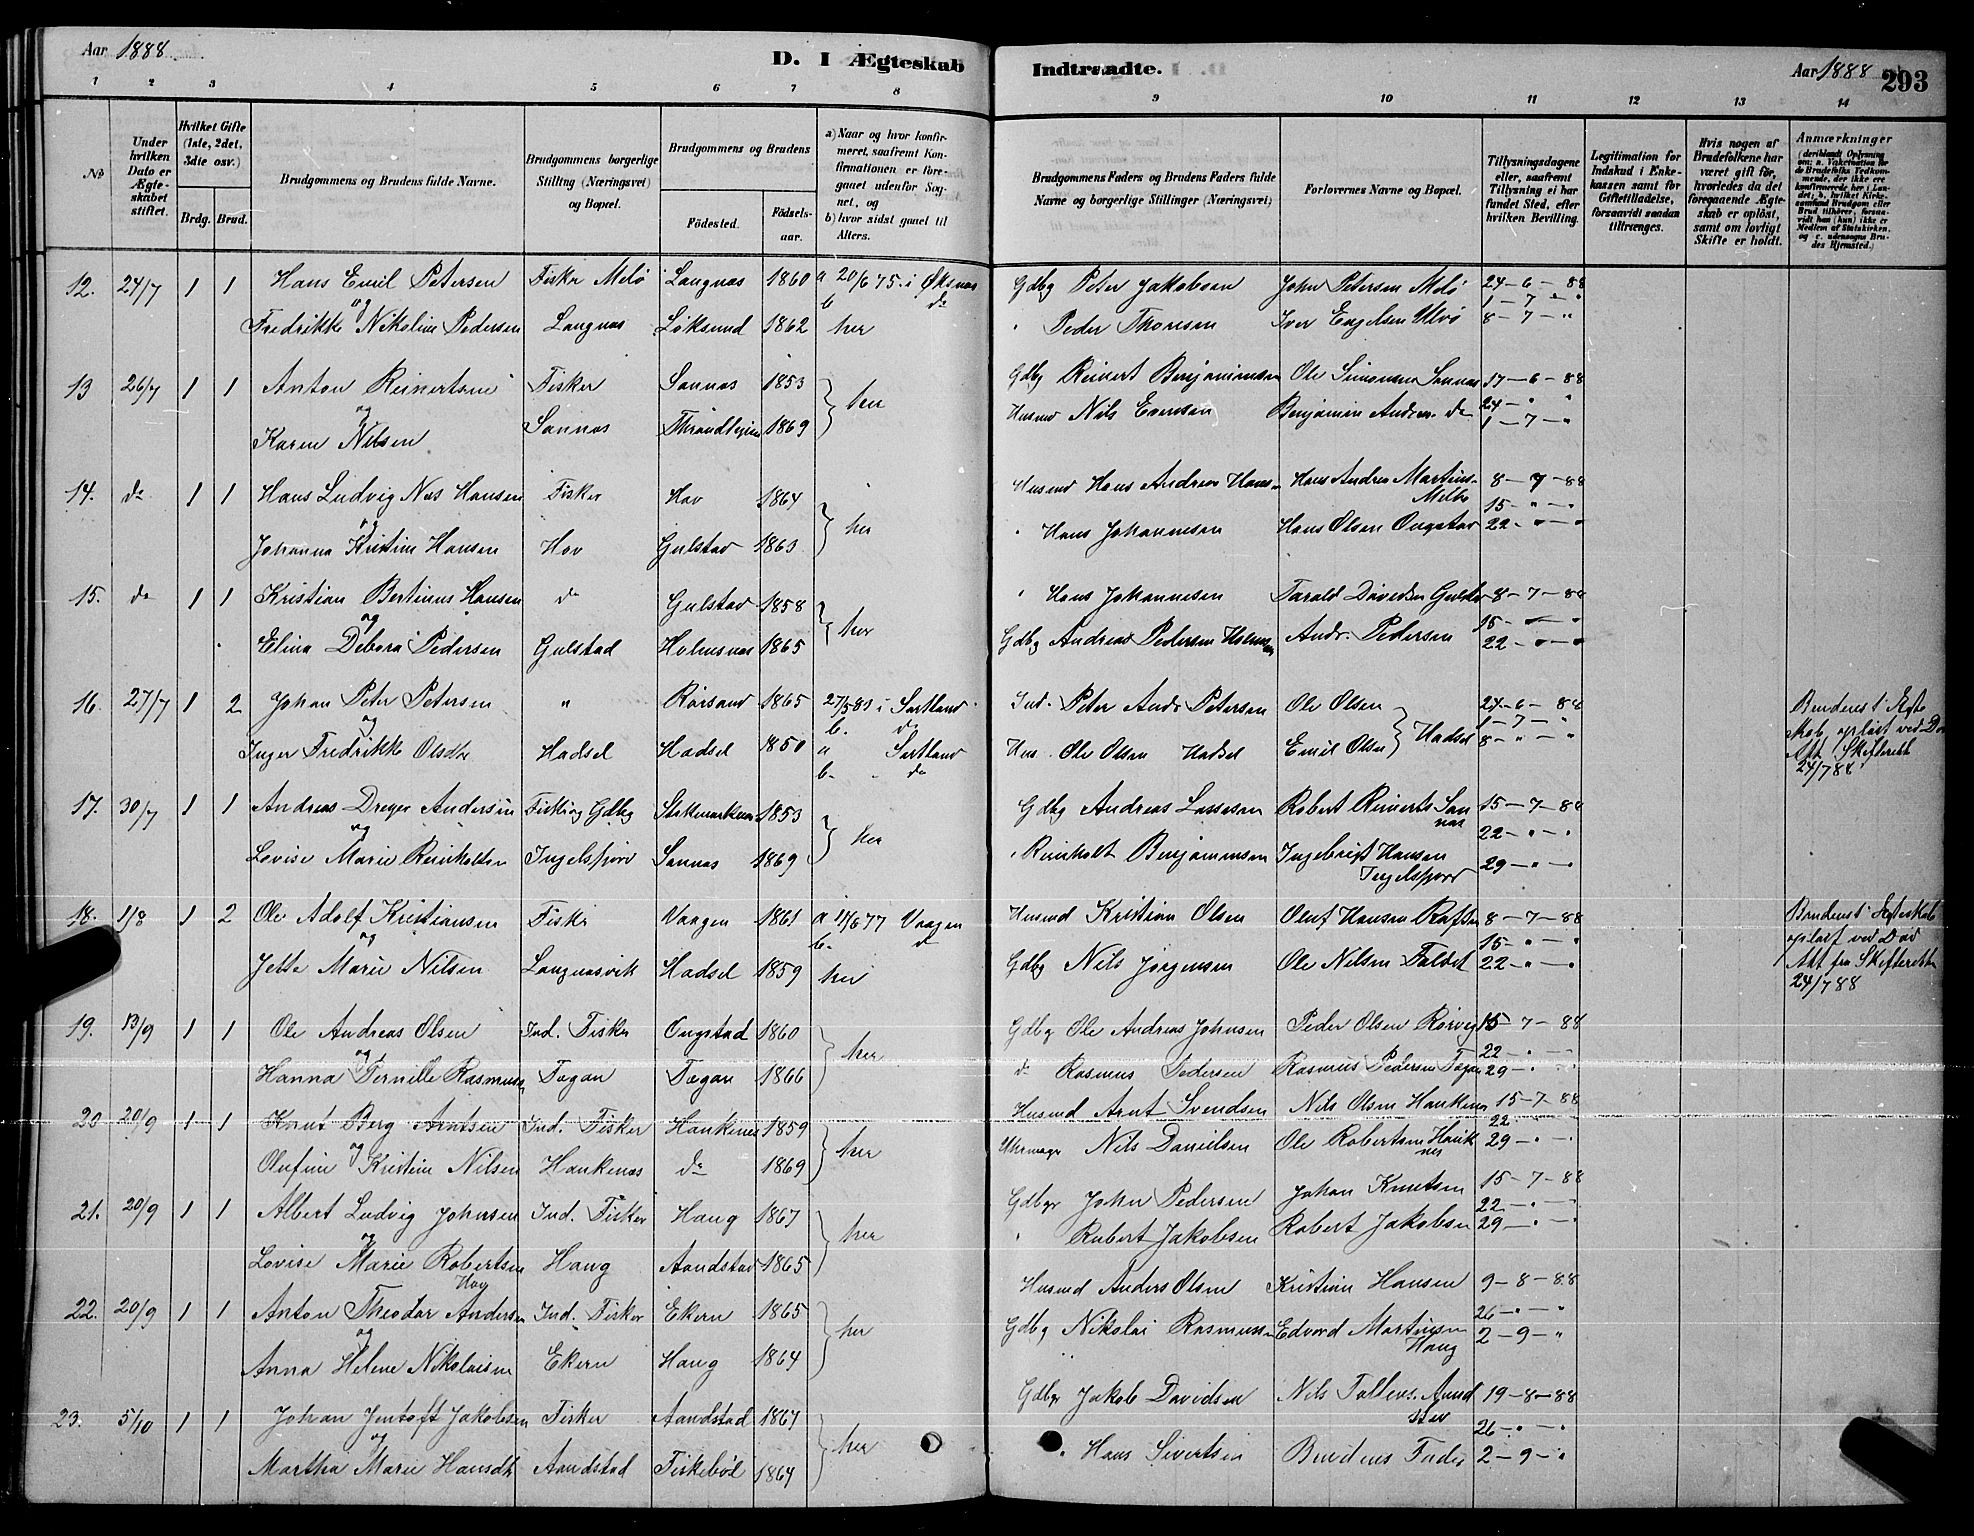 Aar 1888
D. I Ægteskab
Indtraadte.
Aar 1888
293
1 2 3 4 5 6 7 8
9 10 11 12 13 14
No
Under hvilken Dato er Ægteskabet stiftet.
Hvilket Gifte (1ste, 2det, 3die osv.)
Brdg. Brud.
Brudgommens og Brudens fulde Navne.
Brudgommens borgerlige Stilling (Næringsvei) og Bopæl.
Brudgommens og Brudens
Fødested. Fødselsaar.
a) Naar og hvor konfirmeret, saafremt Konfirmationen er foregaaet udenfor Sognet, og
b) hvor sidst gaaet til Alters.
Brudgommens Faders og Brudens Faders fulde Navne og borgerlige Stillinger (Næringsvei)
Forlovernes Navne og Bopæl.
Tillysningsdagene eller, saafremt Tillysning ei har fundet Sted, efter hvilken Bevilling.
Legitimation for Indskud i Enkekassen samt for Giftetilladelse, forsaavidt saadan tiltrænges.
Hvis nogen af Brudefolkene har været gift før, hvorledes da det foregaaende Ægteskab er opløst, samt om lovligt Skifte er holdt.
Anmærkninger
(deriblandt Oplysning om: a. Vakcination for de Brudefolks Vedkommende, der ikke ere konfirmerede her i Landet; b. hvilket Kirkesamfund Brudgom eller Brud tilhører, forsaavidt han (hun) ikke er Medlem af Statskirken, og c. udensogns Brudes Hjemsted.)
12. 24/7 1 1 Hans Emil Petersen Fisker Melö Langnæs 1860 a 20/6 75. i Øksnæs Gdbg Peter Jakobsen John Petersen Melö 24-6-88
og b do 1-7-"
Fredrikke Nikoline Pedersen Langnæs Löksund 1862 her " Peder Thoresen Iver Engelsen Ulvö 8-7-"
13 26/7 1 1 Anton Reinertsen Fisker Sannæs 1853 her Gdbg Reinert Benjaminsen Ole Simonsen Sannæs 17-6-88
og 24-"-"
Karen Nilsen Sannæs Throndhjem 1869 Husmd Nils Evensen Benjamin Andrea. do 1-7-"
14. do 1 1 Hans Ludvig Næs Hansen Fisker Hov 1864 her Husmd Hans Andreas Hans. Hans Andrea Martins. Melbo 8-7-88
og 15-"-"
Johanna Kristine Hansen Hov Gulstad 1863 " Hans Johannesen Hans Olsen Ongstad 22-"-"
15. do 1 1 Kristian Bertinus Hansen do Gulstad 1858 her " Hans Johannesen Tarald Davidsen 8-7-88
og 15-"-"
Elina Debora Pedersen Gulstad Holmsnæs 1865 Gdbg Andreas Pedersen Andr. Pedersen 22-"-"
16. 27/7 1 2 Johan Peter Petersen " Rörsand 1865 27/5 83 i Sortland Ind. Peter Andr Petersen Ole Olsen 24-6-88 Brudens 1' Ægte
og b. do 1-7-" skab opløst ved Død
Inger Fredrikke Olsdtr Hadsel Hadsel 1850 a Sortland Hus. Ole Olsen Hadsel Emil Olsen Hadsel 8-"-" Att. Skifterett
b- do 24/7 88
17. 30/7 1 1 Andreas Dreyer Andersen Fisker og Gdbg Stokmarknæs 1853 her Gdbg Andreas Lassesen Robert Reinerts Sannæs 15-7-88
og 22-"-"
Lovise Marie Reinholdtsen Ingelsfjord Sannæs 1869 " Reinholt Benjaminsen Ingebrigt Hansen Ingelsfjord 29-"-"
18. 1/8 1 2 Ole Adolf Kristiansen Fisker Vaagen 1861 a 17/6 77 Vaagen Husmd Kristian Olsen Oluf Hansen 8-7-88 Brudens 1' Ægteskab
og b- do 15-"-" opløst ved Død
Jette Marie Nilsen Langnæsvik Hadsel 1859 her Gdbg Nils Jörgensen Ole Nilsen Faldet 22-"-" Att fra Skifterett
24/7 88
19. 13/9 1 1 Ole Andreas Olsen Ind. Fisker Ongstad 1860 her Gdbg Ole Andreas Johnsen Peder Olsen Rörvig 15-7-88
og 22-"-"
Hanna Pernille Rasmussn Fægan Fægan 1866 do Rasmus Pedersen Rasmus Pedersen 29-"-"
20 20/9 1 1 Knut Berg Arntsen Ind. Fisker Haukenes 1859 her Husmd Arnt Svendsen Nils Olsen Haukenes 15-7-88
22-
Olufine og Kristine Nilsen Haukenæs do 1869 Uhrmager Nils Danielsen Ole Robertsen Hauknes 29-"-"
21. 20/9 1 1 Albert Ludvig Johnsen Ind. Fisker Haug 1867 her Gdbgr John Pedersen Johan Knutsen 15-7-88
og 22-"-"
Lovise Marie Robertsen Haug Aandstad 1865 " Robert Jakobsen Robert Jakobsen 29-"-"
Hov
22. 20/9 1 1 Anton Theodor Andersen Ind. Fisker Ekern 1865 her Husmd Anders Olsen Kristian Hansen 9-8-88
og 26-"-"
Anna Helene Nikolaisen Ekern Haug 1864 Gdbg Nikolai Rasmussen Edvard Martinsen Haug 2-9-"
23. 5/10 1 1 Johan Jentoft Jakobsen Fisker Aandstad 1867 her Gdbgr Jakob Davidsen Nils Tollevs. Aandstad 19-8-88
og 26-"-"
Martha Marie Hansdtr Aandstad Fiskebøl 1864 " Hans Sivertsen Brudens Fader 2-9-"